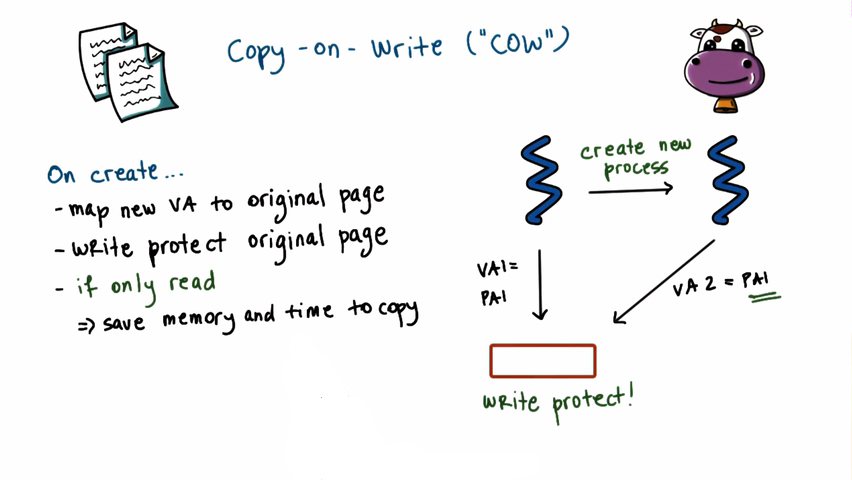 Copy-on-Write ("COW")
On create...
- map new VA to original page
- write protect original page
- if only read
=> save memory and time to copy
create new
process
VA1 =
PA1
VA 2 = PA1
write protect!